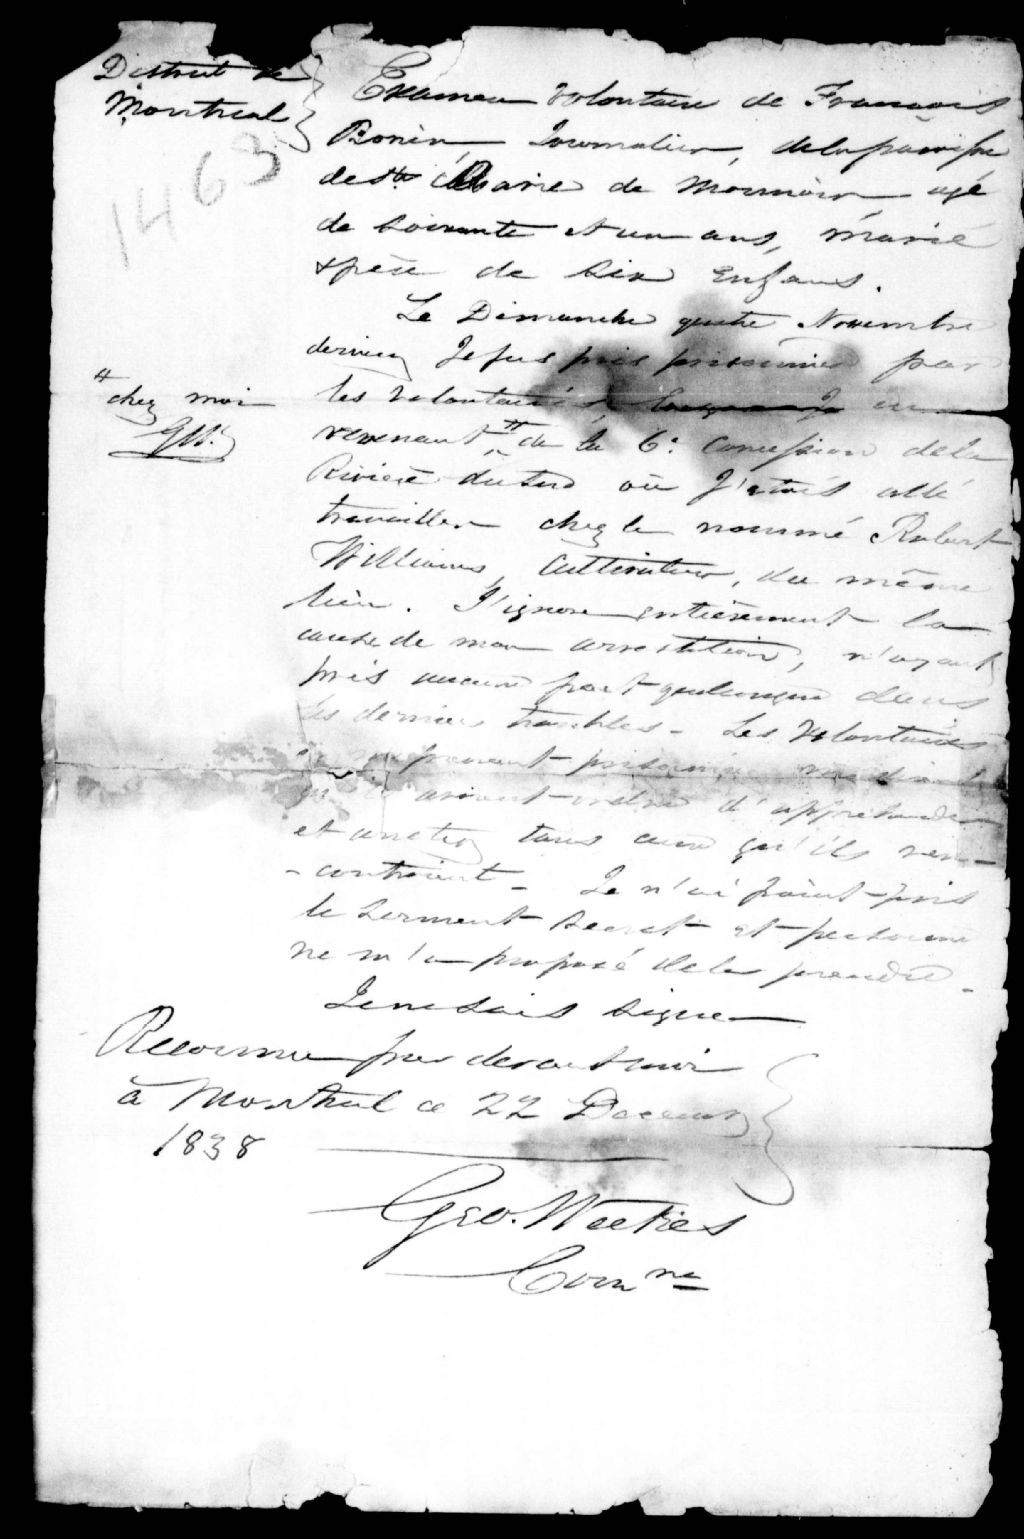 District de
Montreal
1463
Examen Volontaire de François
Bonin, Journalier, de la paroisse
de Ste Césarie de Monnoir agé
de Soixante et un ans, marié
& père de Six Enfans.
Le Dimanche quatre Novembre
dernier Je fus pris prisonnier par
les volontaires, en
revenant # de la 6e. Concession de la
# chez moi
GW.
Rivière du Sud où J'étais allé
travailler chez le nommé Robert
Williams, Cultivateur, du même
lieu. J'ignore entièrement la
cause de mon arrestation, n'ayant
pris aucune part quelconque dans
les derniers troubles - Les Volontaires
en me prenant prisonnier me disant
qu'ils avaient ordre d'appréhender
et arrêter tous ceux qu'ils ren-
-contraient - Je n'ai point pris
le Serment Secret et personne
ne m'a proposé de le prendre.
Je ne Sais Signer
Reconnu par devant moi
à Montreal ce 22 Decembre
1838
Geo. Weekes
Comre